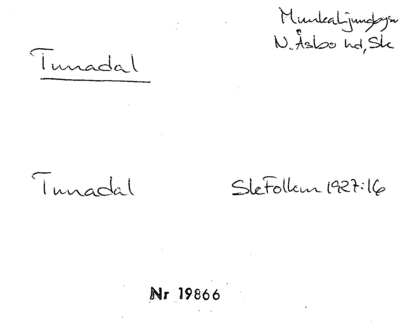 Munkaljungbysn
N. Åsbo hd, Sk
Tunadal
Tunadal SkFolkm 1927:16
Nr 19866